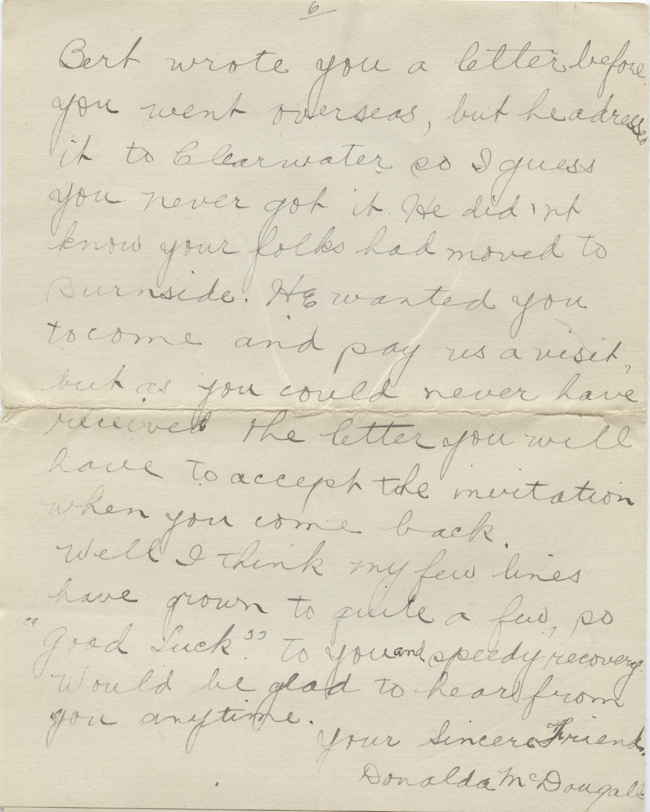 6
Bert wrote you a letter before
you went overseas, but he adressed
it to Clearwater so I guess
you never got it. He did'nt
know your folks had moved to
Burnside. He wanted you
to come and pay us a visit,
but as you could never have
received the letter you will
have to accept the invitation
when you come back.
Well I think my few lines
have grown to quite a few, so
"Good Luck" to you and speedy recovery.
Would be glad to hear from
you anytime.
Your Sincere Friend.
Donalda McDougall